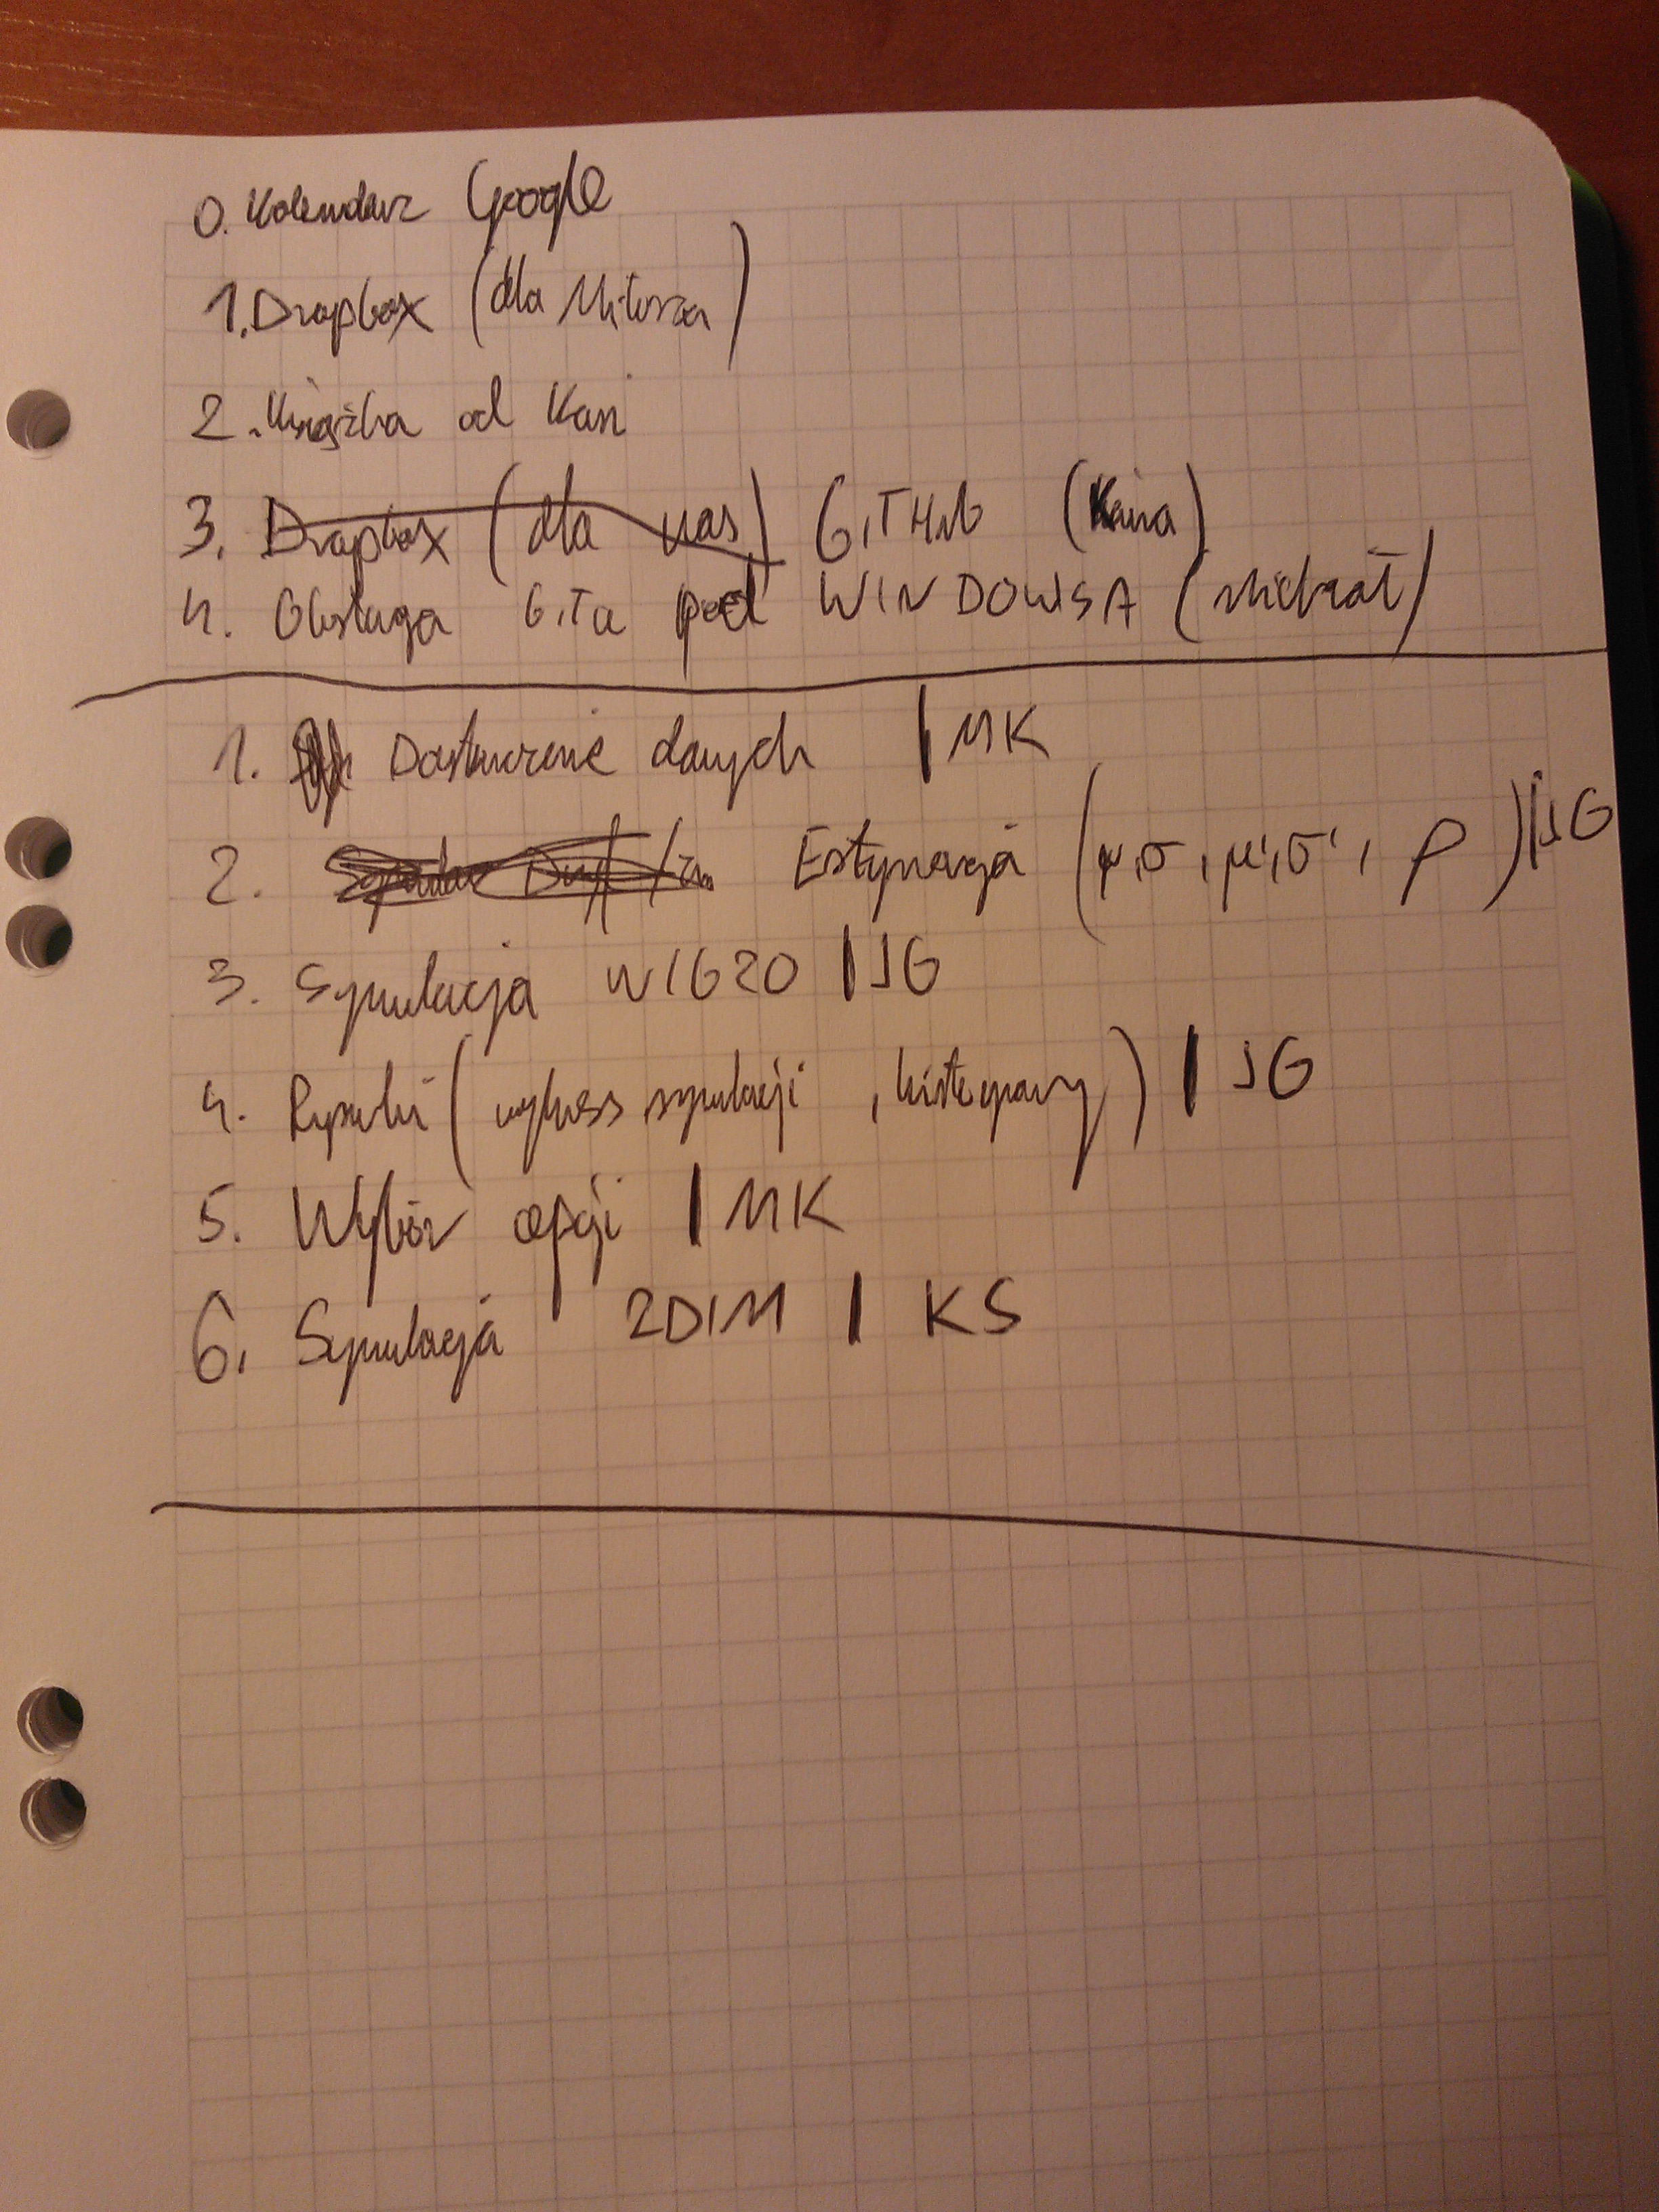 0. Kalendarz Google
1. Dropbox (dla Miłosza)
2. Książka od Kasi
3. Dropbox (dla nas) GITHub (Kasia)
4. Obsługa GiTa pod WINDOWSA (Michał)
1. Dostarczenie danych | MK
2. Estymacja (μ, σ, μ', σ', ρ) | JG
3. Symulacja WIG20 | JG
4. Rysunki (wykres symulacji, histogramy) | JG
5. Wybór opcji | MK
6. Symulacja 2DIM | KS